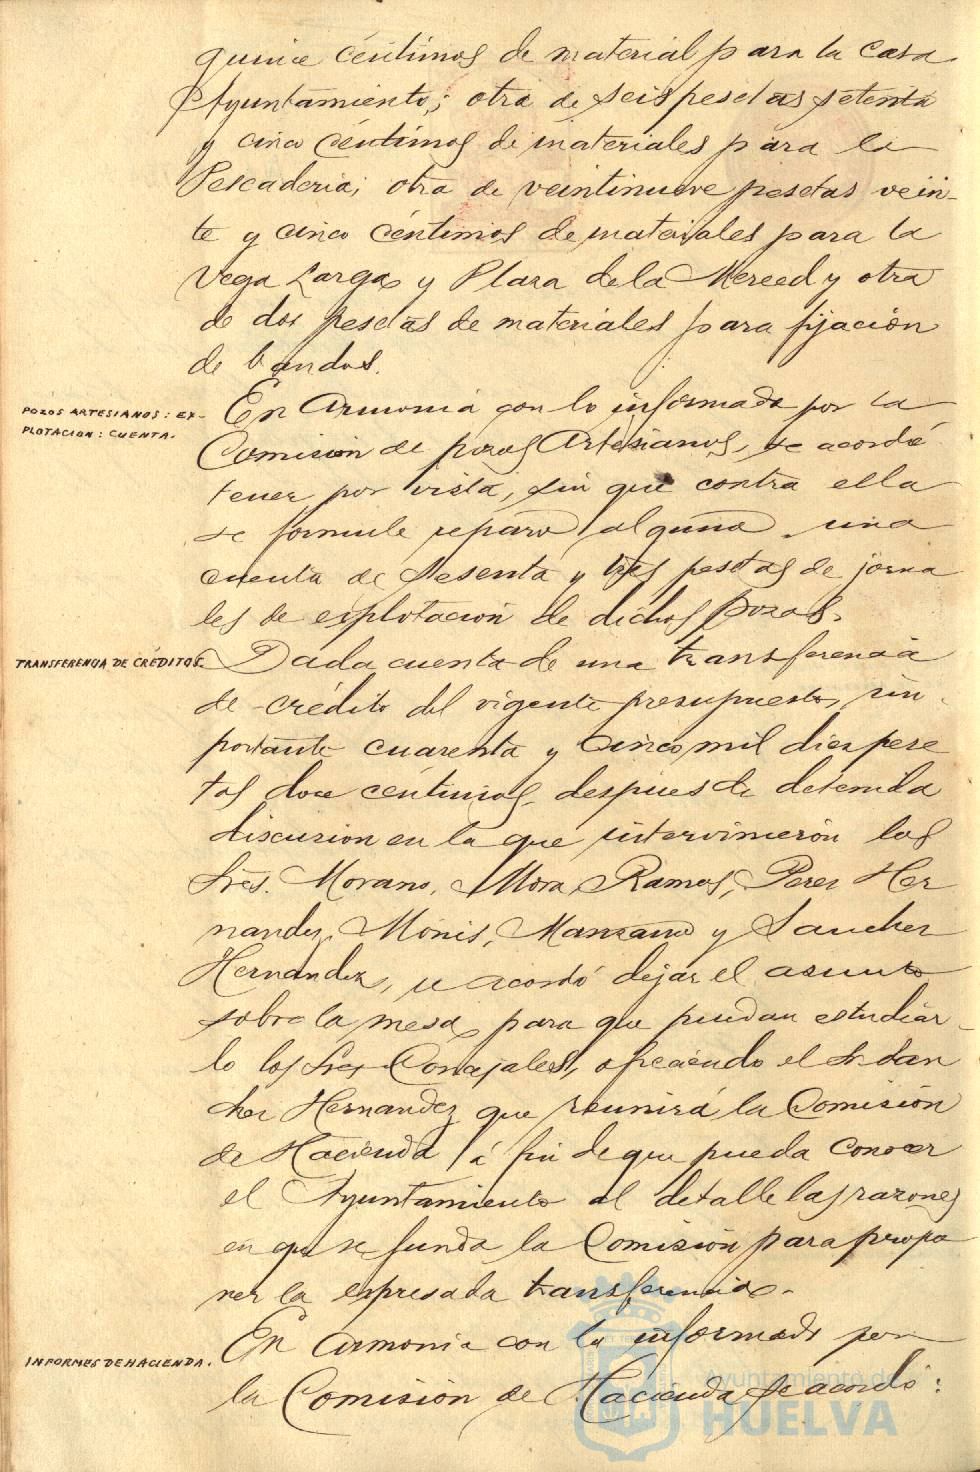 quince céntimos de material para la casa
Ayuntamiento; otra de seis pesetas setenta
y cinco céntimos de materiales para la
Pescaderia; otra de veintinueve pesetas vein-
te y cinco céntimos de materiales para la
Vega Larga y Plaza de la Merced y otra
de dos pesetas de materiales para fijación
de bandos.
POZOS ARTESIANOS: EX-
PLOTACION: CUENTA.
En armonia con lo informado por la
Comisión de pozos Artesianos, se acordó
tener por vista, sin que contra ella
se formule reparo alguno, una
cuenta de sesenta y tres pesetas de jorna
les de esplotación de dichos pozos.
TRANSFERENCIA DE CRÉDITOS.
Dada cuenta de una transferencia
de crédito del vigente presupuesto, im-
portante cuarenta y cinco mil diez pese
tas doce céntimos, despues de detenida
discusion en la que intervinieron los
Sres. Morano, Mora, Ramos, Perez Her
nandez, Monis, Manzano y Sanchez
Hernandez, se acordó dejar el asunto
sobre la mesa, para que puedan estudiar-
lo los Sres. Concejales, ofreciendo el Sr. San
chez Hernandez que reunirá la Comisión
de Hacienda á fin de que pueda conocer
el Ayuntamiento al detalle las razones
en que se funda la Comisión para propo
ner la espresada transferencia.
INFORMES DE HACIENDA.
En armonia con lo informado por
la Comisión de Hacienda se acordó:
Ayuntamiento de
HUELVA